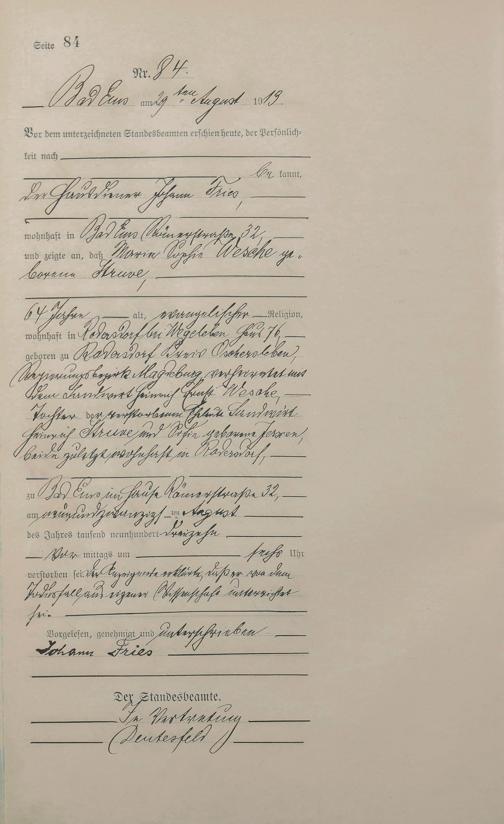 Seite 84
Nr. 84.
Bad Ems am 29ten August 1913.
Vor dem unterzeichneten Standesbeamten erschien heute, der Persönlich-
keit nach
be kannt,
der Hausdiener Johann Fries,
wohnhaft in Bad Ems Römerstraße 32,
und zeigte an, daß Maria Sophie Wesche ge-
borene Struve,
64 Jahre alt, evangelischer Religion,
wohnhaft in Rodersdorf bei Wegeleben Haus 76,
geboren zu Rodersdorf Kreis Oschersleben,
Regierungsbezirk Magdeburg, verheiratet mit
dem Landwirt Heinrich Ernst Wesche,
Tochter der verstorbenen Eheleute Landwirt
Heinrich Struve und Sofie geborene
beide zuletzt wohnhaft in Rodersdorf,
zu Bad Ems im Hause Römerstraße 32,
am neunundzwanzigsten August
des Jahres tausend neunhundert dreizehn
Vor mittags um sechs Uhr
verstorben sei. Der Anzeigende erklärte, daß er von dem
Todesfall aus eigener Wissenschaft unterrichtet
sei.
Vorgelesen, genehmigt und unterschrieben
Johann Fries
Der Standesbeamte.
In Vertretung